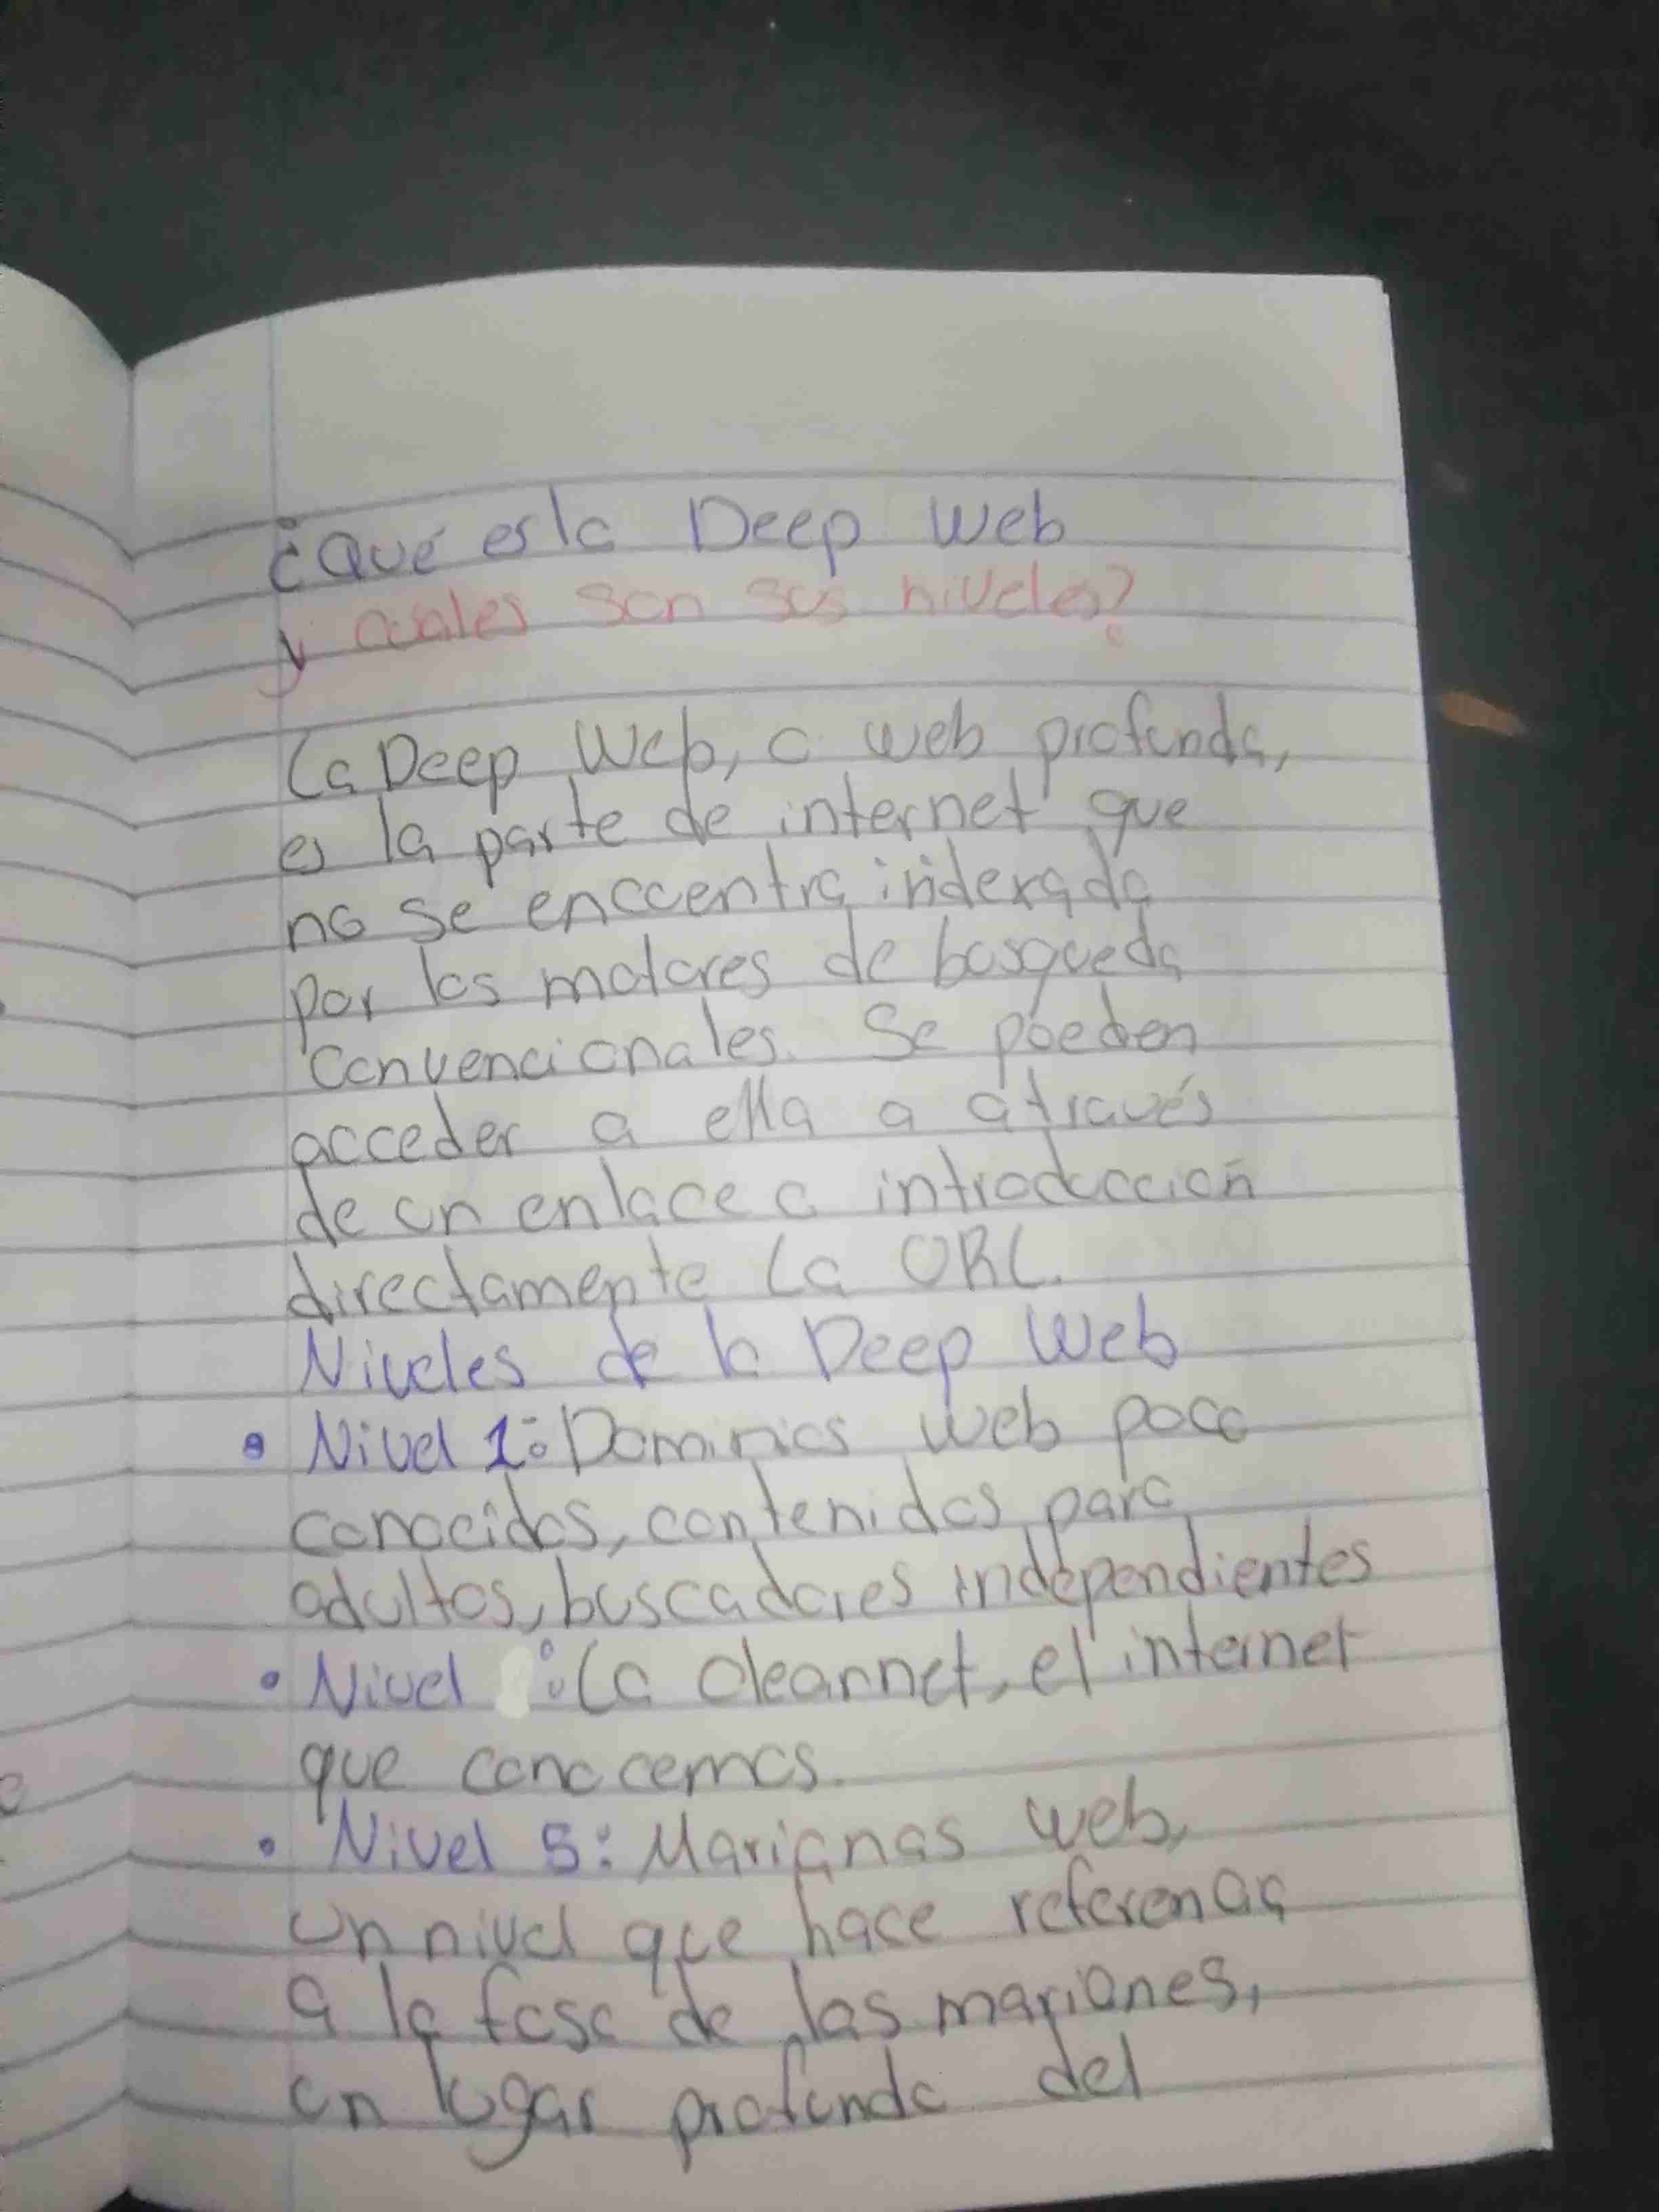 ¿Qué es la Deep Web
y cuáles son sus niveles?
La Deep Web, o web profunda,
es la parte de internet que
no se encuentra indexada
por los motores de busqueda
convencionales. Se pueden
acceder a ella a através
de un enlace o introducción
directamente la URL.
Niveles de la Deep Web
• Nivel 1: Dominios web poco
conocidos, contenidos para
adultos, buscadores independientes
• Nivel : La clearnet, el internet
que conocemos.
• Nivel 5: Marianas web,
un nivel que hace referencia
a la fosa de las marianes,
un lugar profundo del